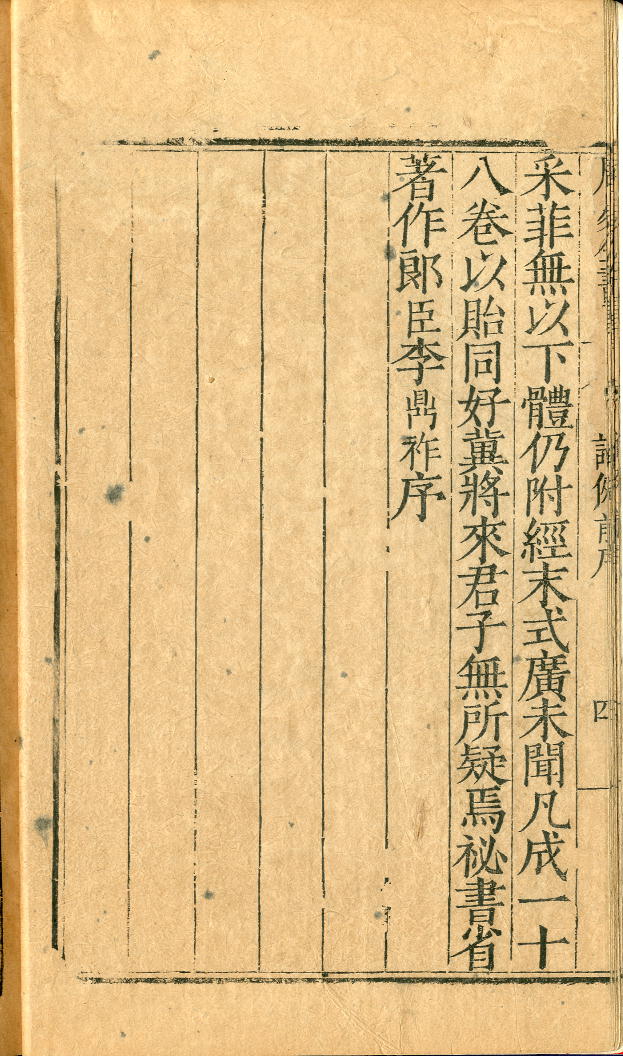 四
采菲無以下體仍附經末式廣未聞凡成一十
八卷以貽同好冀將來君子無所疑焉祕書省
著作郎臣李鼎祚序